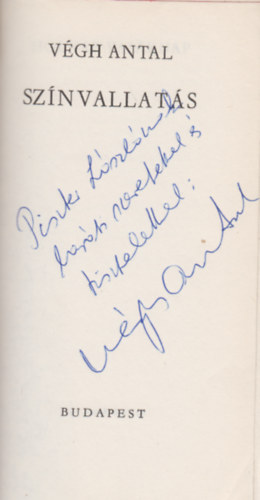 VÉGH ANTAL
SZÍNVALLATÁS
Piszter Lászlónak
baráti szeretettel és
tisztelettel:
Végh Antal
BUDAPEST